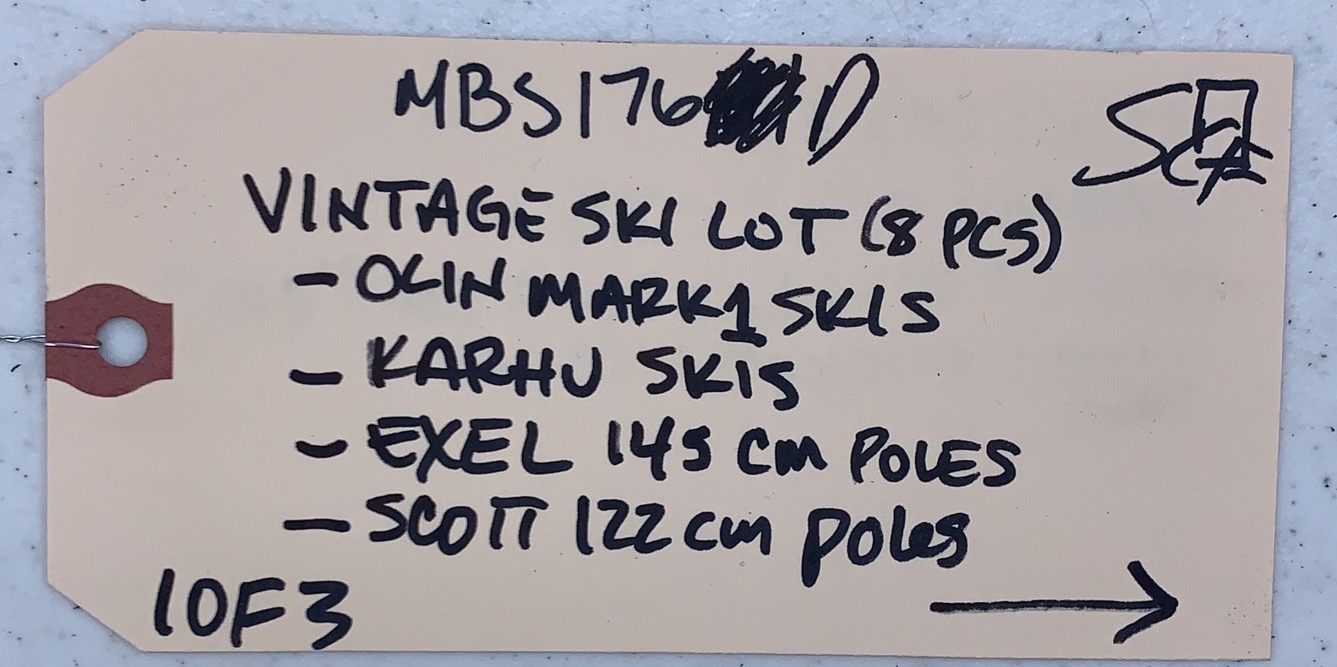 MBS176 D
VINTAGE SKI LOT (8 PCS)
- OLIN MARK 1 SKIS
- KARHU SKIS
- EXEL 145 cm POLES
- SCOTT 122 cm poles
1 OF 3